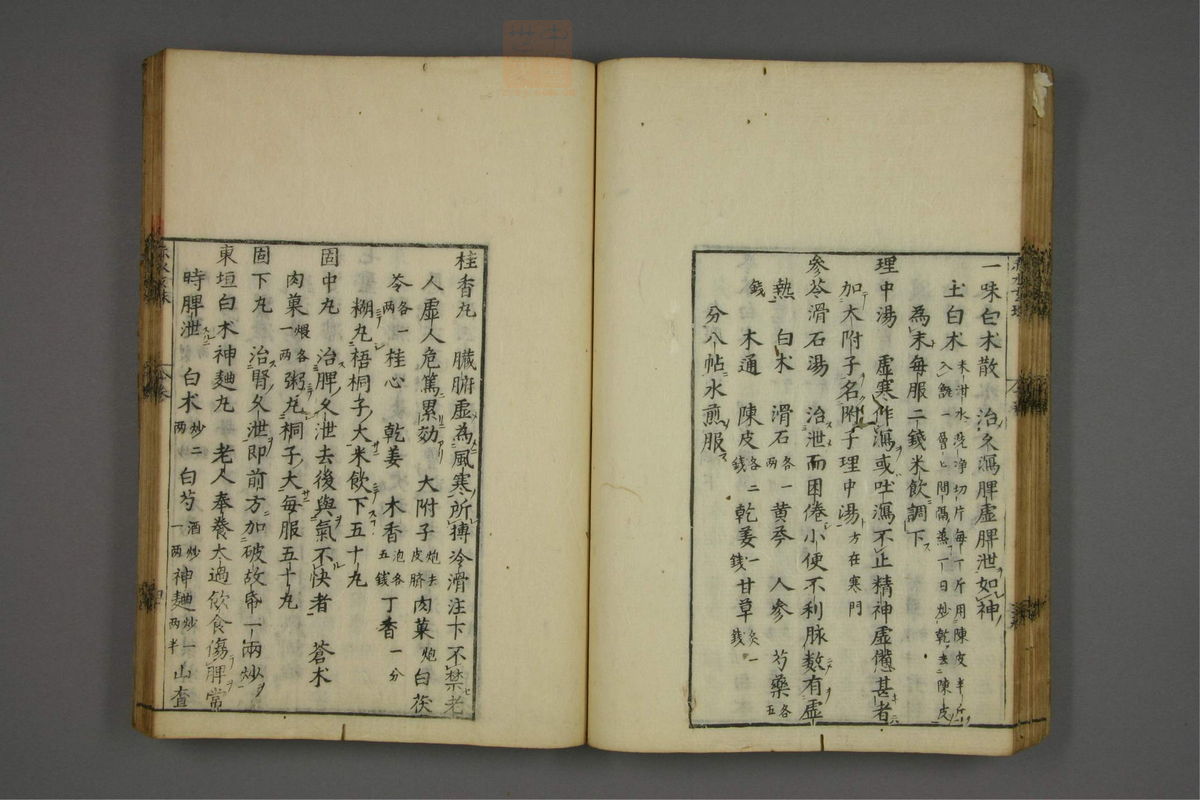 一味白朮散 治久瀉脾虛脾泄如神
土白朮 米泔水浸净切片每一斤用陳皮半斤入甑一層七間隔蒸一日炒乾去陳皮
為末每服二錢米飲調下
理中湯 虛寒作瀉或吐瀉不止精神虛憊甚者
加大附子名附子理中湯 方在寒門
參苓滑石湯 治泄而困倦小便不利脉数有虛
熱 白朮 滑石各一兩 黄芩 人參 芍藥各五
錢 木通 陳皮各二錢 乾姜一錢 甘草炙一錢
分八帖水煎服
桂香丸 臟腑虛為風寒所搏冷滑注下不禁老
人虛人危篤累効 大附子炮去皮臍 肉菓炮 白茯
苓各一兩 桂心 乾姜 木香泡各五錢 丁香一分
糊丸梧桐子大米飲下五十丸
固中丸 治脾久泄去後與氣不快者 蒼朮
肉菓煨各一兩 粥丸桐子大每服五十丸
固下丸 治腎久泄即前方加破故帋一兩炒
東垣白朮神麯丸 老人奉養太過飲食傷脾常
時脾泄 白朮炒二兩 白芍酒炒一兩 神麯炒一兩半 山査